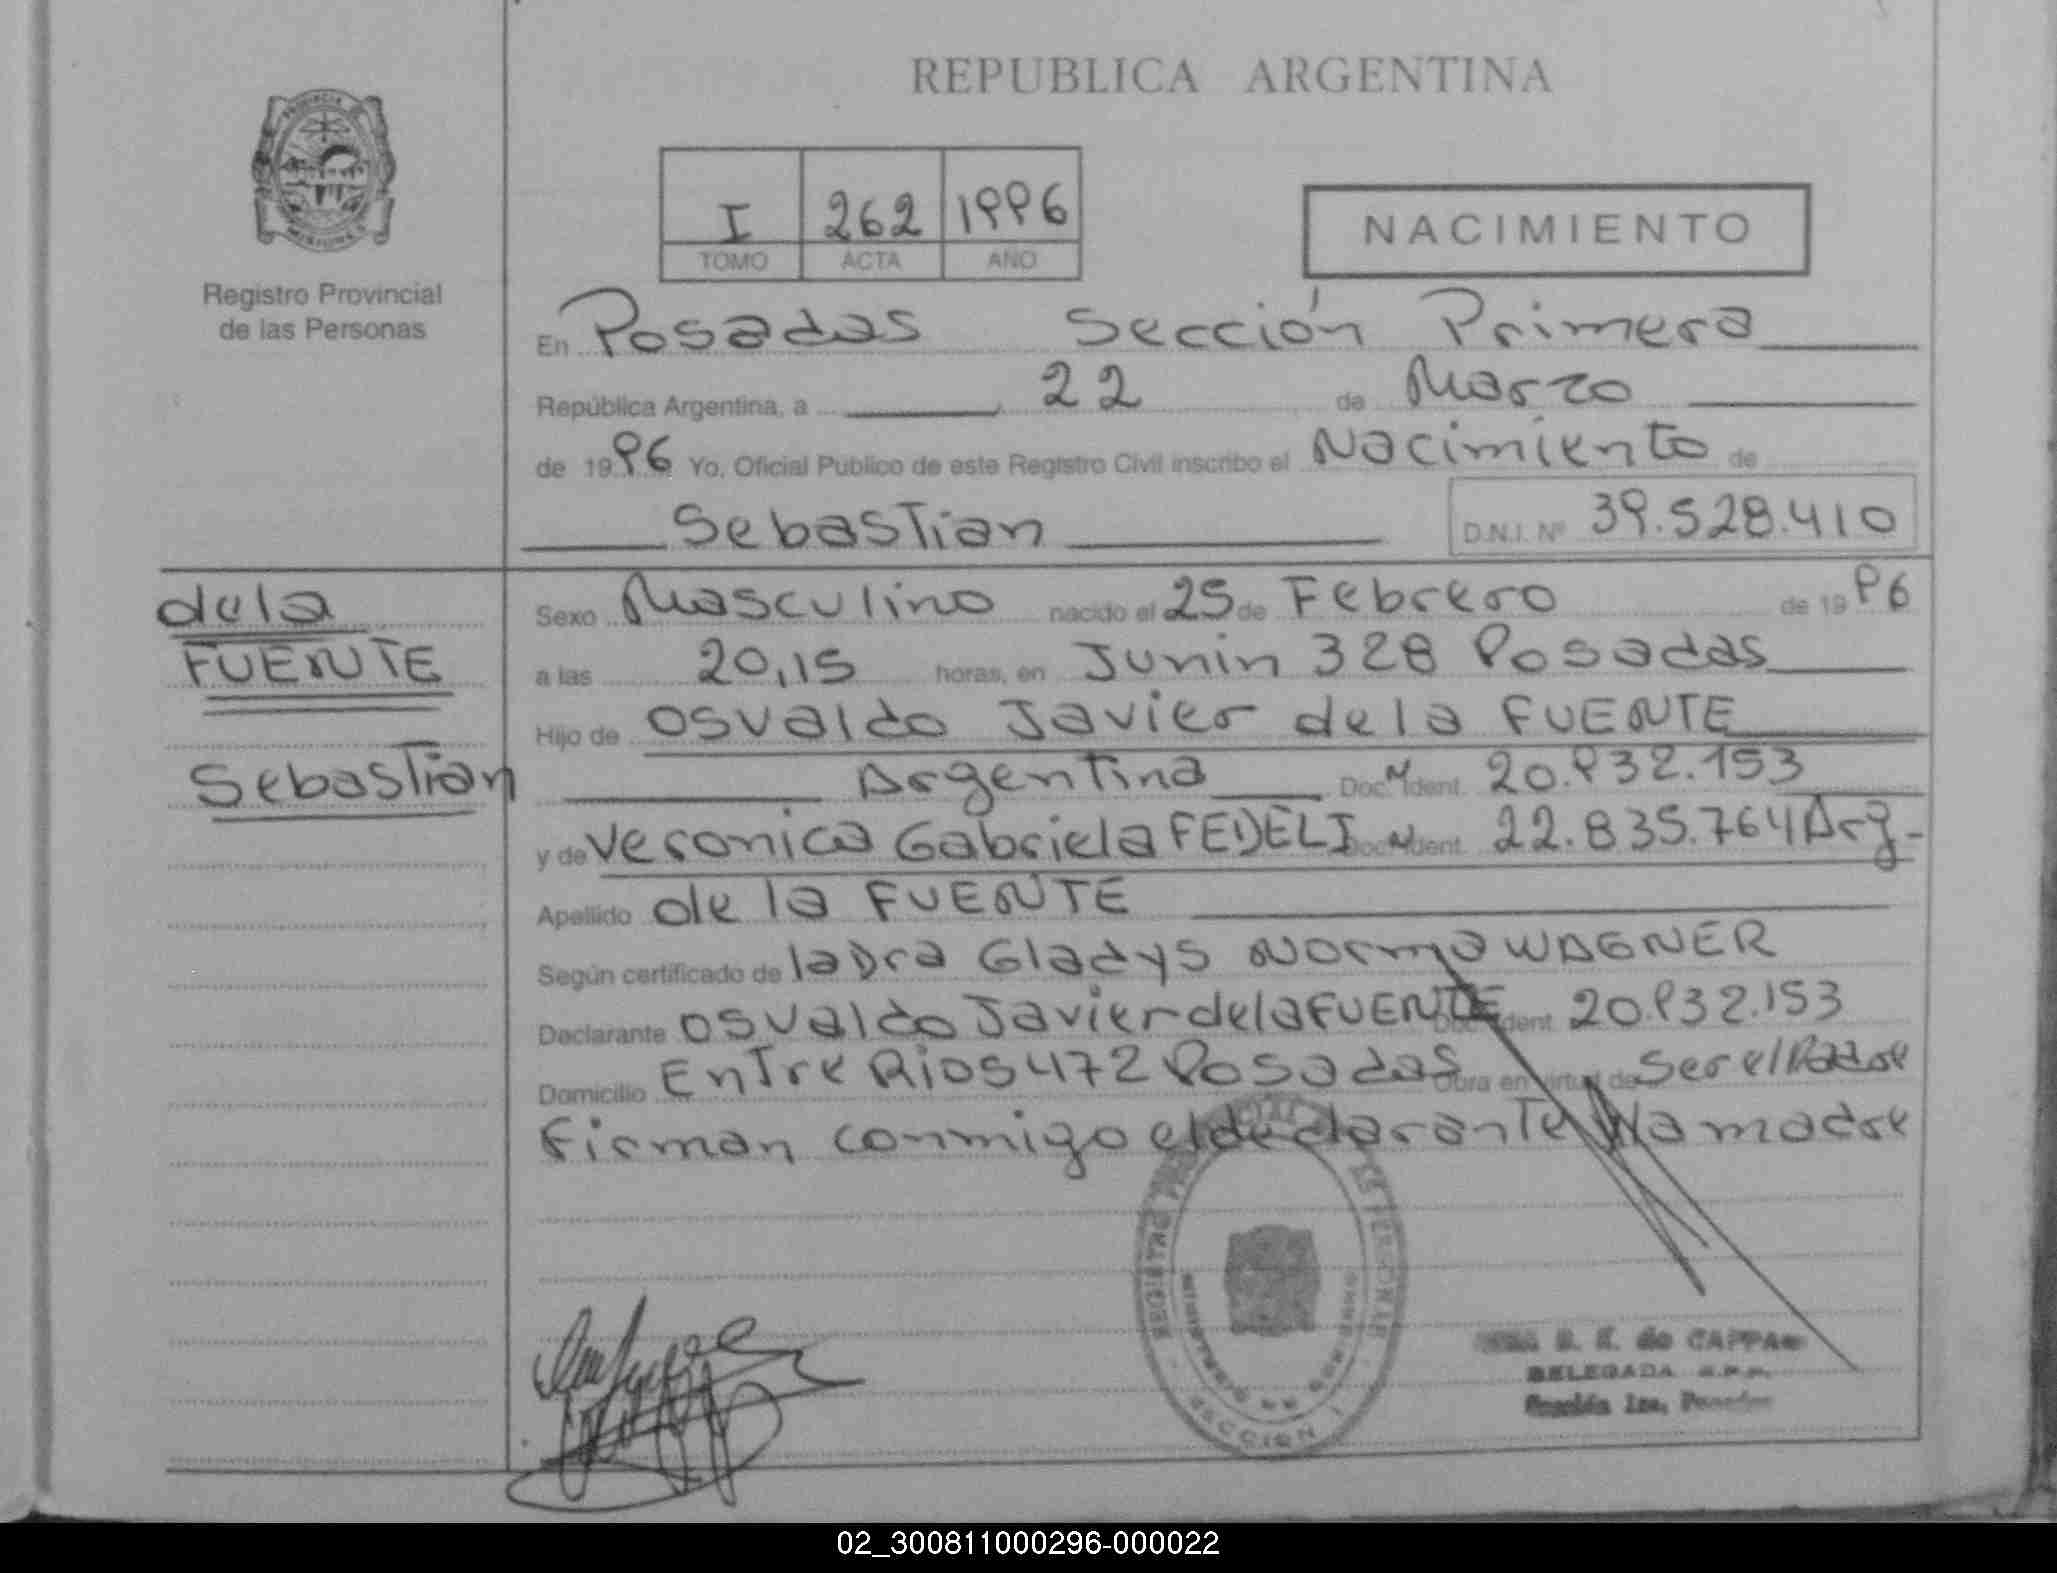 REPUBLICA ARGENTINA
PROVINCIA DE
MISIONES
Registro Provincial
de las Personas
I 262 1996
TOMO ACTA AÑO
NACIMIENTO
En Posadas Sección Primera
República Argentina, a 22 de Marzo
de 1996 Yo, Oficial Público de este Registro Civil inscribo el Nacimiento de
Sebastian D.N.I. Nº 39.528.410
de la
FUENTE
Sebastian
Sexo Masculino nacido el 25 de Febrero de 1996
a las 20,15 horas, en Junin 328 Posadas
Hijo de Osvaldo Javier de la FUENTE
Argentina Doc. Ident. 20.932.153
y de Veronica Gabriela FEDELI Doc. Ident. 22.835.764 Arg-
Apellido de la FUENTE
Según certificado de la Dra Gladys Norma WAGNER
Declarante Osvaldo Javier de la FUENTE Doc. Ident. 20.932.153
Domicilio Entre Rios 472 Posadas Obra en virtud de Ser el Padre
Firman conmigo el declarante y la madre
REGISTRO PERSONAS
MINISTERIO DE GOBIERNO
SECCION 1
de CAPPA
DELEGADA
Sección 1ra. Posadas
02_300811000296-000022